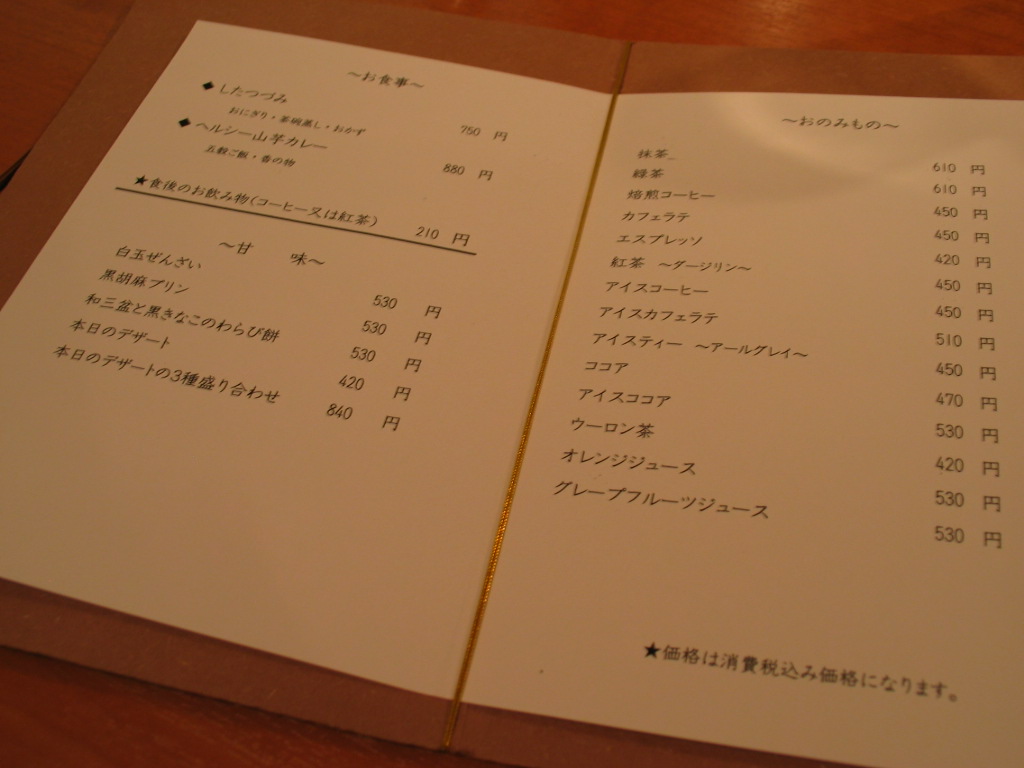 ～お食事～
◆したつづみ 750 円
おにぎり・茶碗蒸し・おかず
◆ヘルシー山芋カレー 880 円
五穀ご飯・香の物
★食後のお飲み物(コーヒー又は紅茶) 210 円
～甘 味～
白玉ぜんざい 530 円
黒胡麻プリン 530 円
和三盆と黒きなこのわらび餅 530 円
本日のデザート 420 円
本日のデザートの3種盛り合わせ 840 円
～おのみもの～
抹茶 610 円
緑茶 610 円
焙煎コーヒー 450 円
カフェラテ 450 円
エスプレッソ 420 円
紅茶 ～ダージリン～ 450 円
アイスコーヒー 450 円
アイスカフェラテ 510 円
アイスティー ～アールグレイ～ 450 円
ココア 470 円
アイスココア 530 円
ウーロン茶 420 円
オレンジジュース 530 円
グレープフルーツジュース 530 円
★価格は消費税込み価格になります。